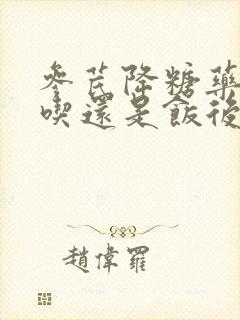 參芪降糖藥
喫還是飯後
趙偉羅